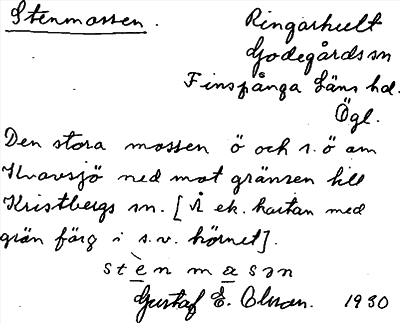 Stenmossen.
Ringarhult
Godegårds sn
Finspånga Läns hd.
Ögl.
Den stora mossen ö och s.ö om
Kvavsjö ned mot gränsen till
Kristbergs sn. [Å ek. kartan med
grön färg i s.v. hörnet].
stènmasən
Gustaf E. Olsson. 1930